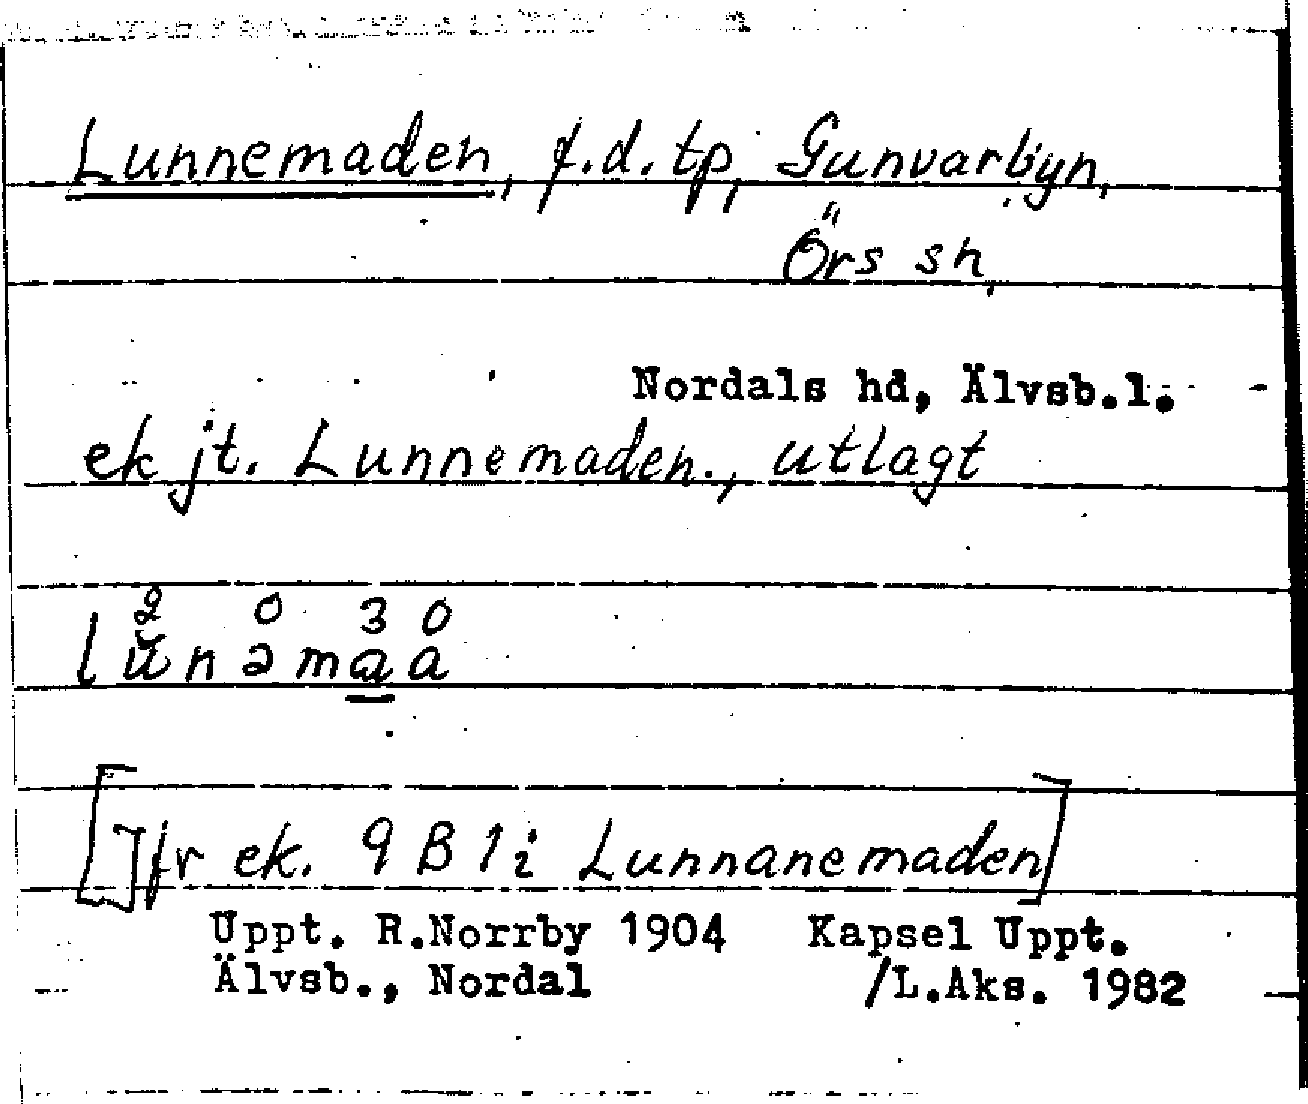 Lunnemaden, f.d. tp, Gunvarbyn,
Örs sn,
Nordals hd, Älvsb.l.
ek jt. Lunnemaden., utlagt
2 0 3 0
lŭnəmaa
[Jfr ek. 9 B 1 i Lunnanemaden]
Uppt. R.Norrby 1904 Kapsel Uppt.
Älvsb., Nordal /L.Aks. 1982